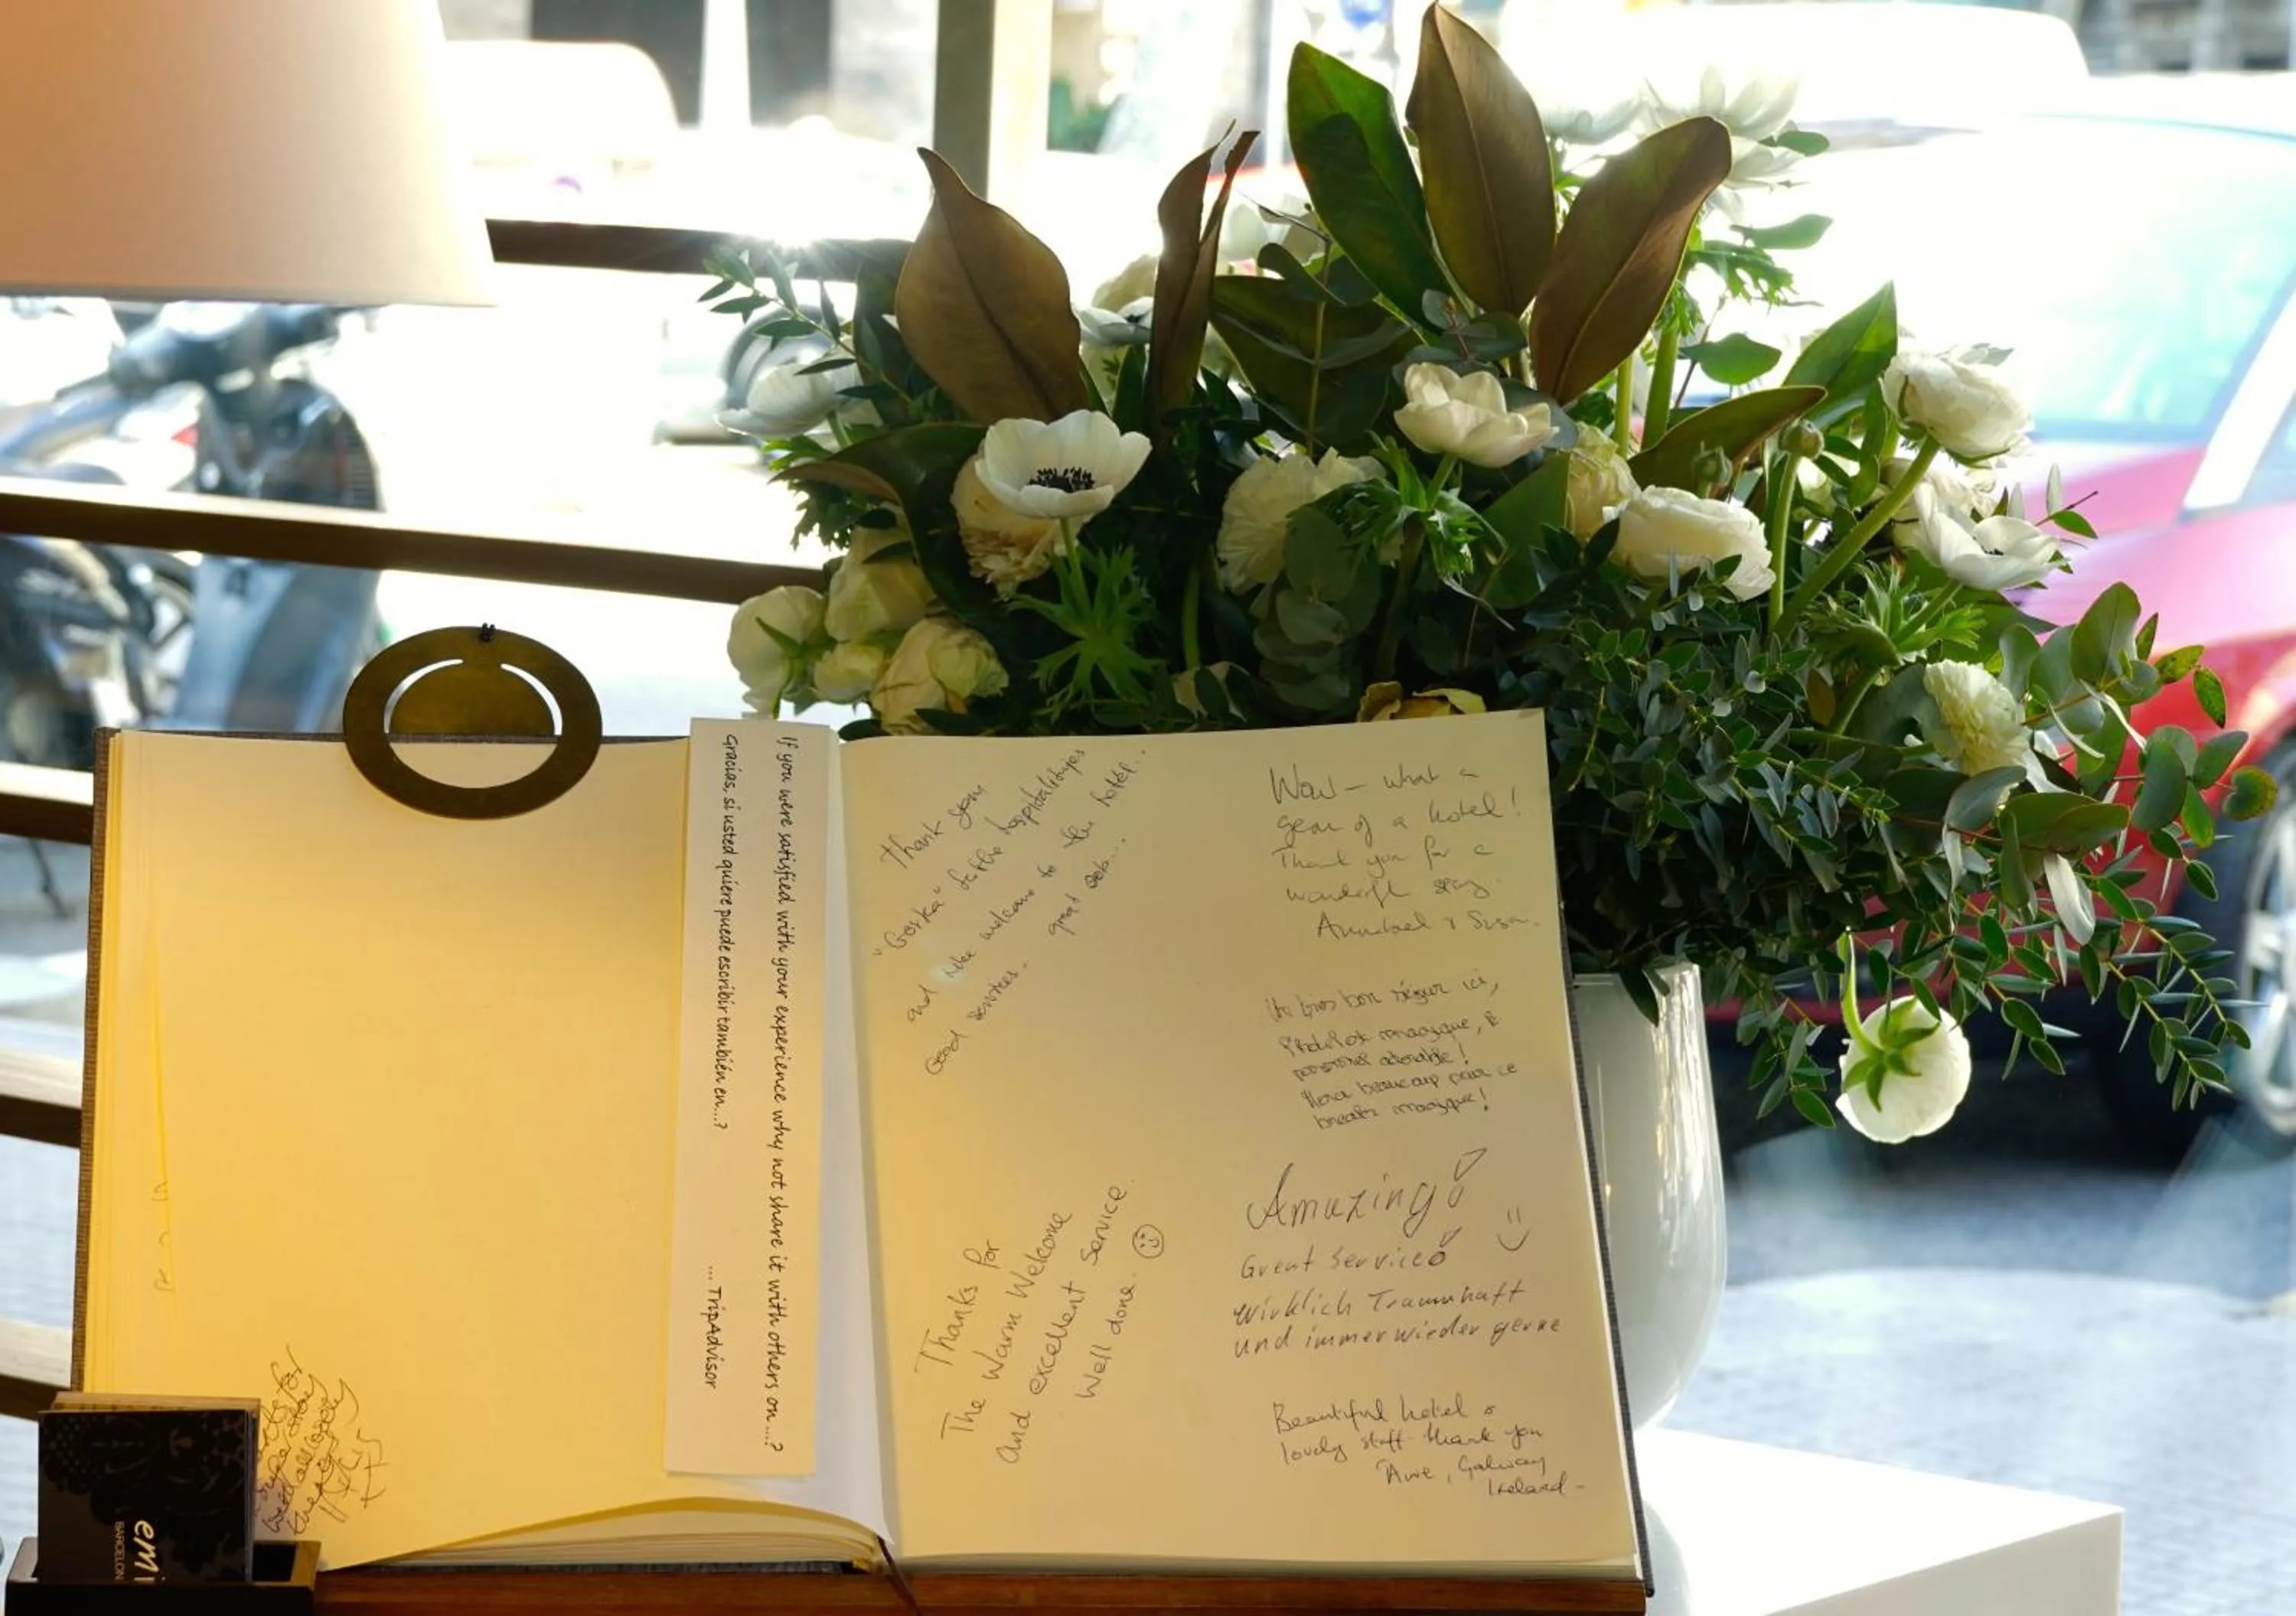 If you were satisfied with your experience why not share it with others on....?
Gracias, si usted quiere puede escribir también en...?
.... TripAdvisor
Thank you
"Gorka" for the hospitalitujes
and like welcome to the hotel..
Good services. great job...
Thanks for
The Warm Welcome
and excellent Service.
Well done.
Wow – what a
gem of a hotel!
Thank you for a
wonderfl stay.
Annabel & Susan.
Un bon séjour ici,
magique,
personnel adorable!
beaucoup pour ce
magique!
Amazing!
Great Service!
wirklich Traumhaft
und immer wieder gerne
Beautiful hotel &
lovely staff thank you
Galway
Ireland –
BARCELON